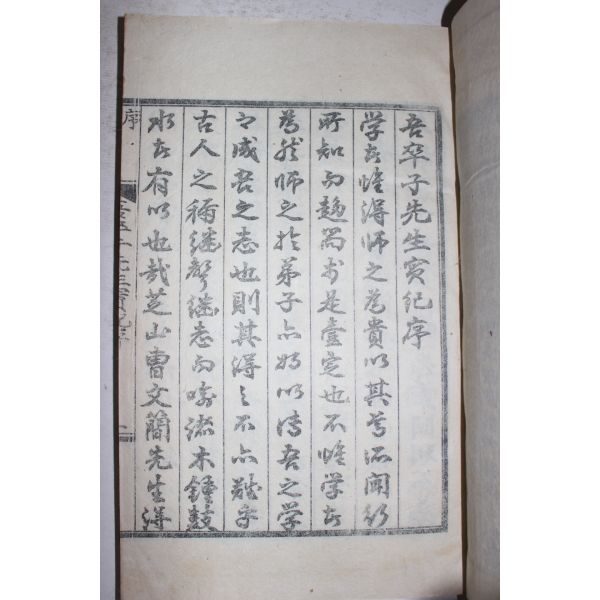 吾卒子先生實紀序
学者惟得師之爲貴以其尊所聞行
所知而趍爲者是壹定也不惟学者
爲然師之於弟子亦好以傳吾之学
而成吾之志也則其得之不亦難乎
古人之稱繼聲繼志而喩諸木鍾鼓
水者有以也哉芝山曹文簡先生得
序